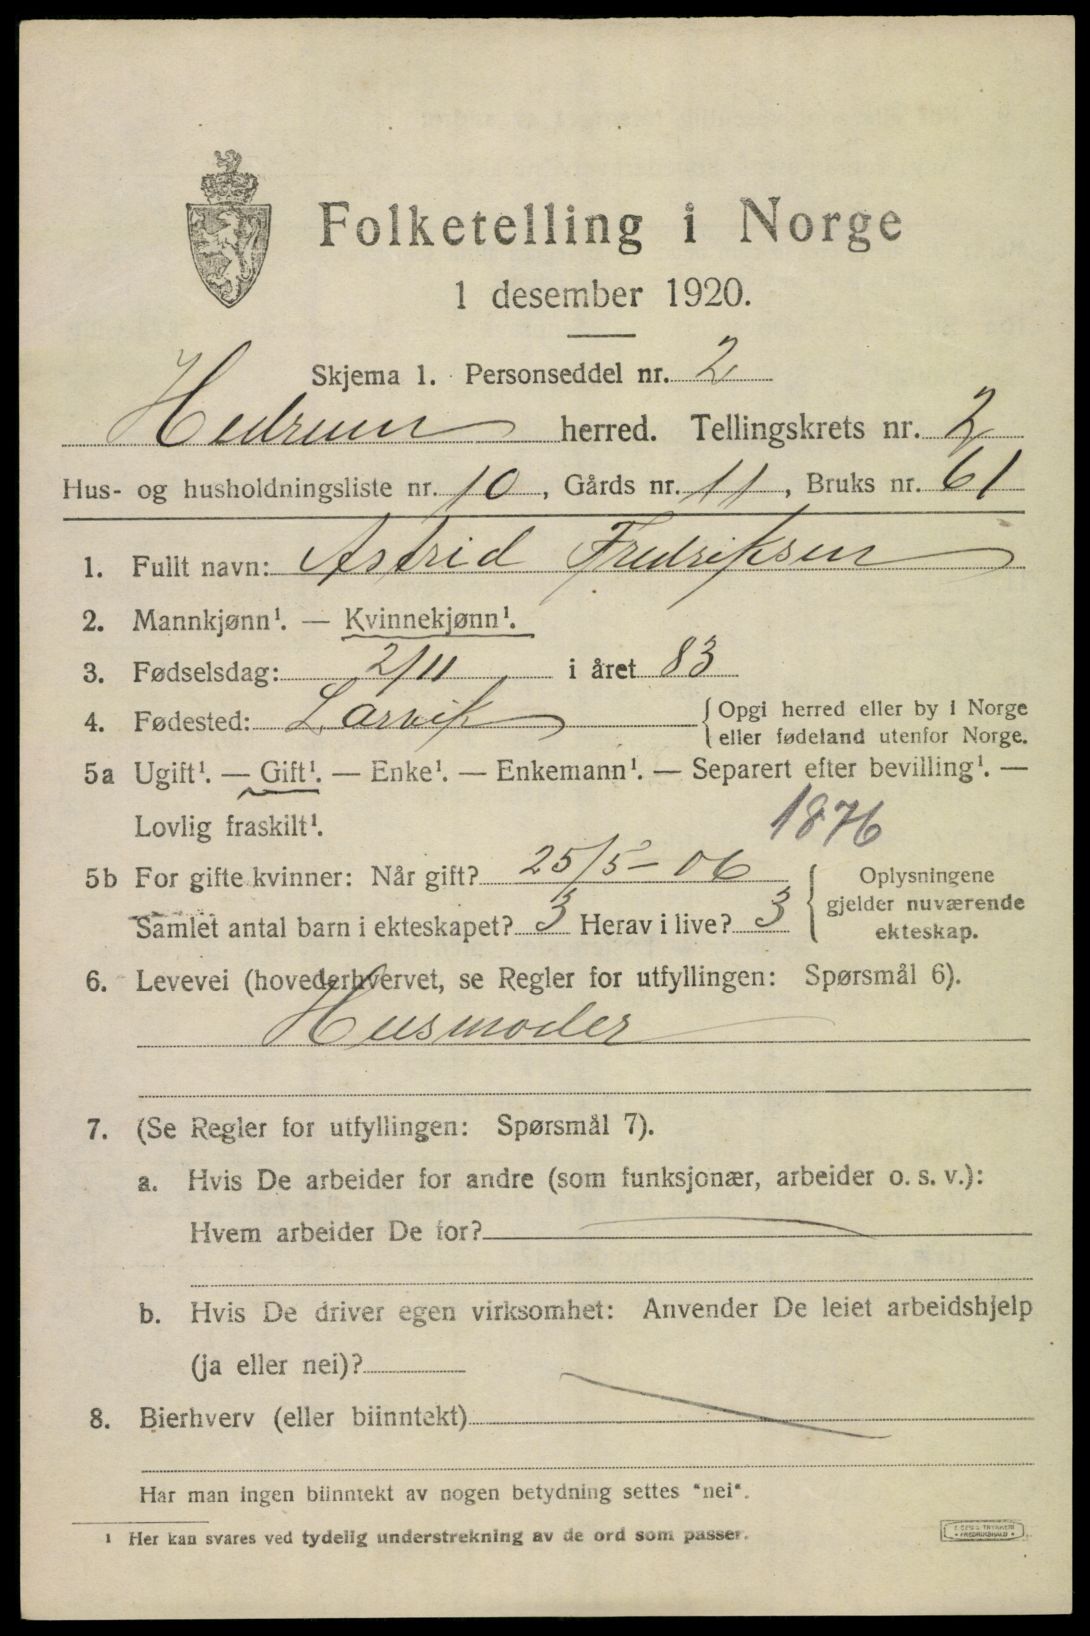 Folketelling i Norge
1 desember 1920.
Skjema 1. Personseddel nr. 2
Hedrum herred. Tellingskrets nr. 2
Hus- og husholdningsliste nr. 10, Gårds nr. 11, Bruks nr. 61
1. Fullt navn: Astrid Fredriksen
2. Mannkjønn¹. — Kvinnekjønn¹.
3. Fødselsdag: 2/11 i året 83
4. Fødested: Larvik { Opgi herred eller by i Norge
eller fødeland utenfor Norge.
5a Ugift¹. — Gift¹. — Enke¹. — Enkemann¹. — Separert efter bevilling¹. —
Lovlig fraskilt¹. 1876
5b For gifte kvinner: Når gift? 25/5-06 { Oplysningene
gjelder nuværende
Samlet antal barn i ekteskapet? 3 Herav i live? 3
ekteskap.
6. Levevei (hovederhvervet, se Regler for utfyllingen: Spørsmål 6).
Husmoder
7. (Se Regler for utfyllingen: Spørsmål 7).
a. Hvis De arbeider for andre (som funksjonær, arbeider o. s. v.):
Hvem arbeider De for? —
b. Hvis De driver egen virksomhet: Anvender De leiet arbeidshjelp
(ja eller nei)?
8. Bierhverv (eller biinntekt)
Har man ingen biinntekt av nogen betydning settes "nei".
¹ Her kan svares ved tydelig understrekning av de ord som passer.
FREDRIKSHALD